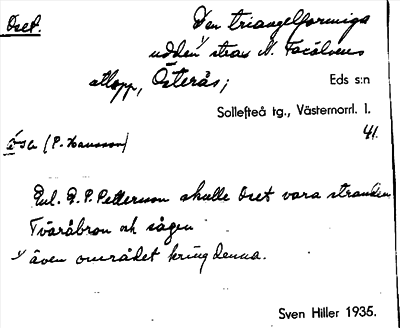 Öset. Den triangelformiga
udden 1/ strax N. Tacåluens
utlopp, Österås; Eds s:n
Sollefteå tg., Västernorrl. l.
41.
ȯ́sa (P. Hansson)
Enl. G. P. Pettersson skulle Öset vara stranden
Tväråbron och sågen
1/ även området kring denna.
Sven Hiller 1935.